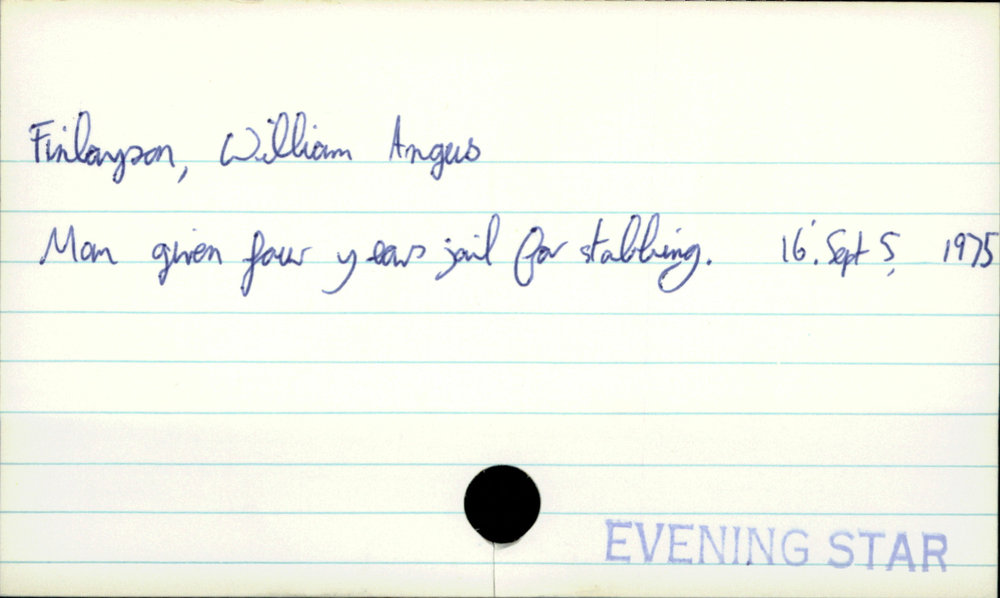 Finlayson, William Angus
Man given four years jail for stabbing. 16. Sept 5, 1975
EVENING STAR